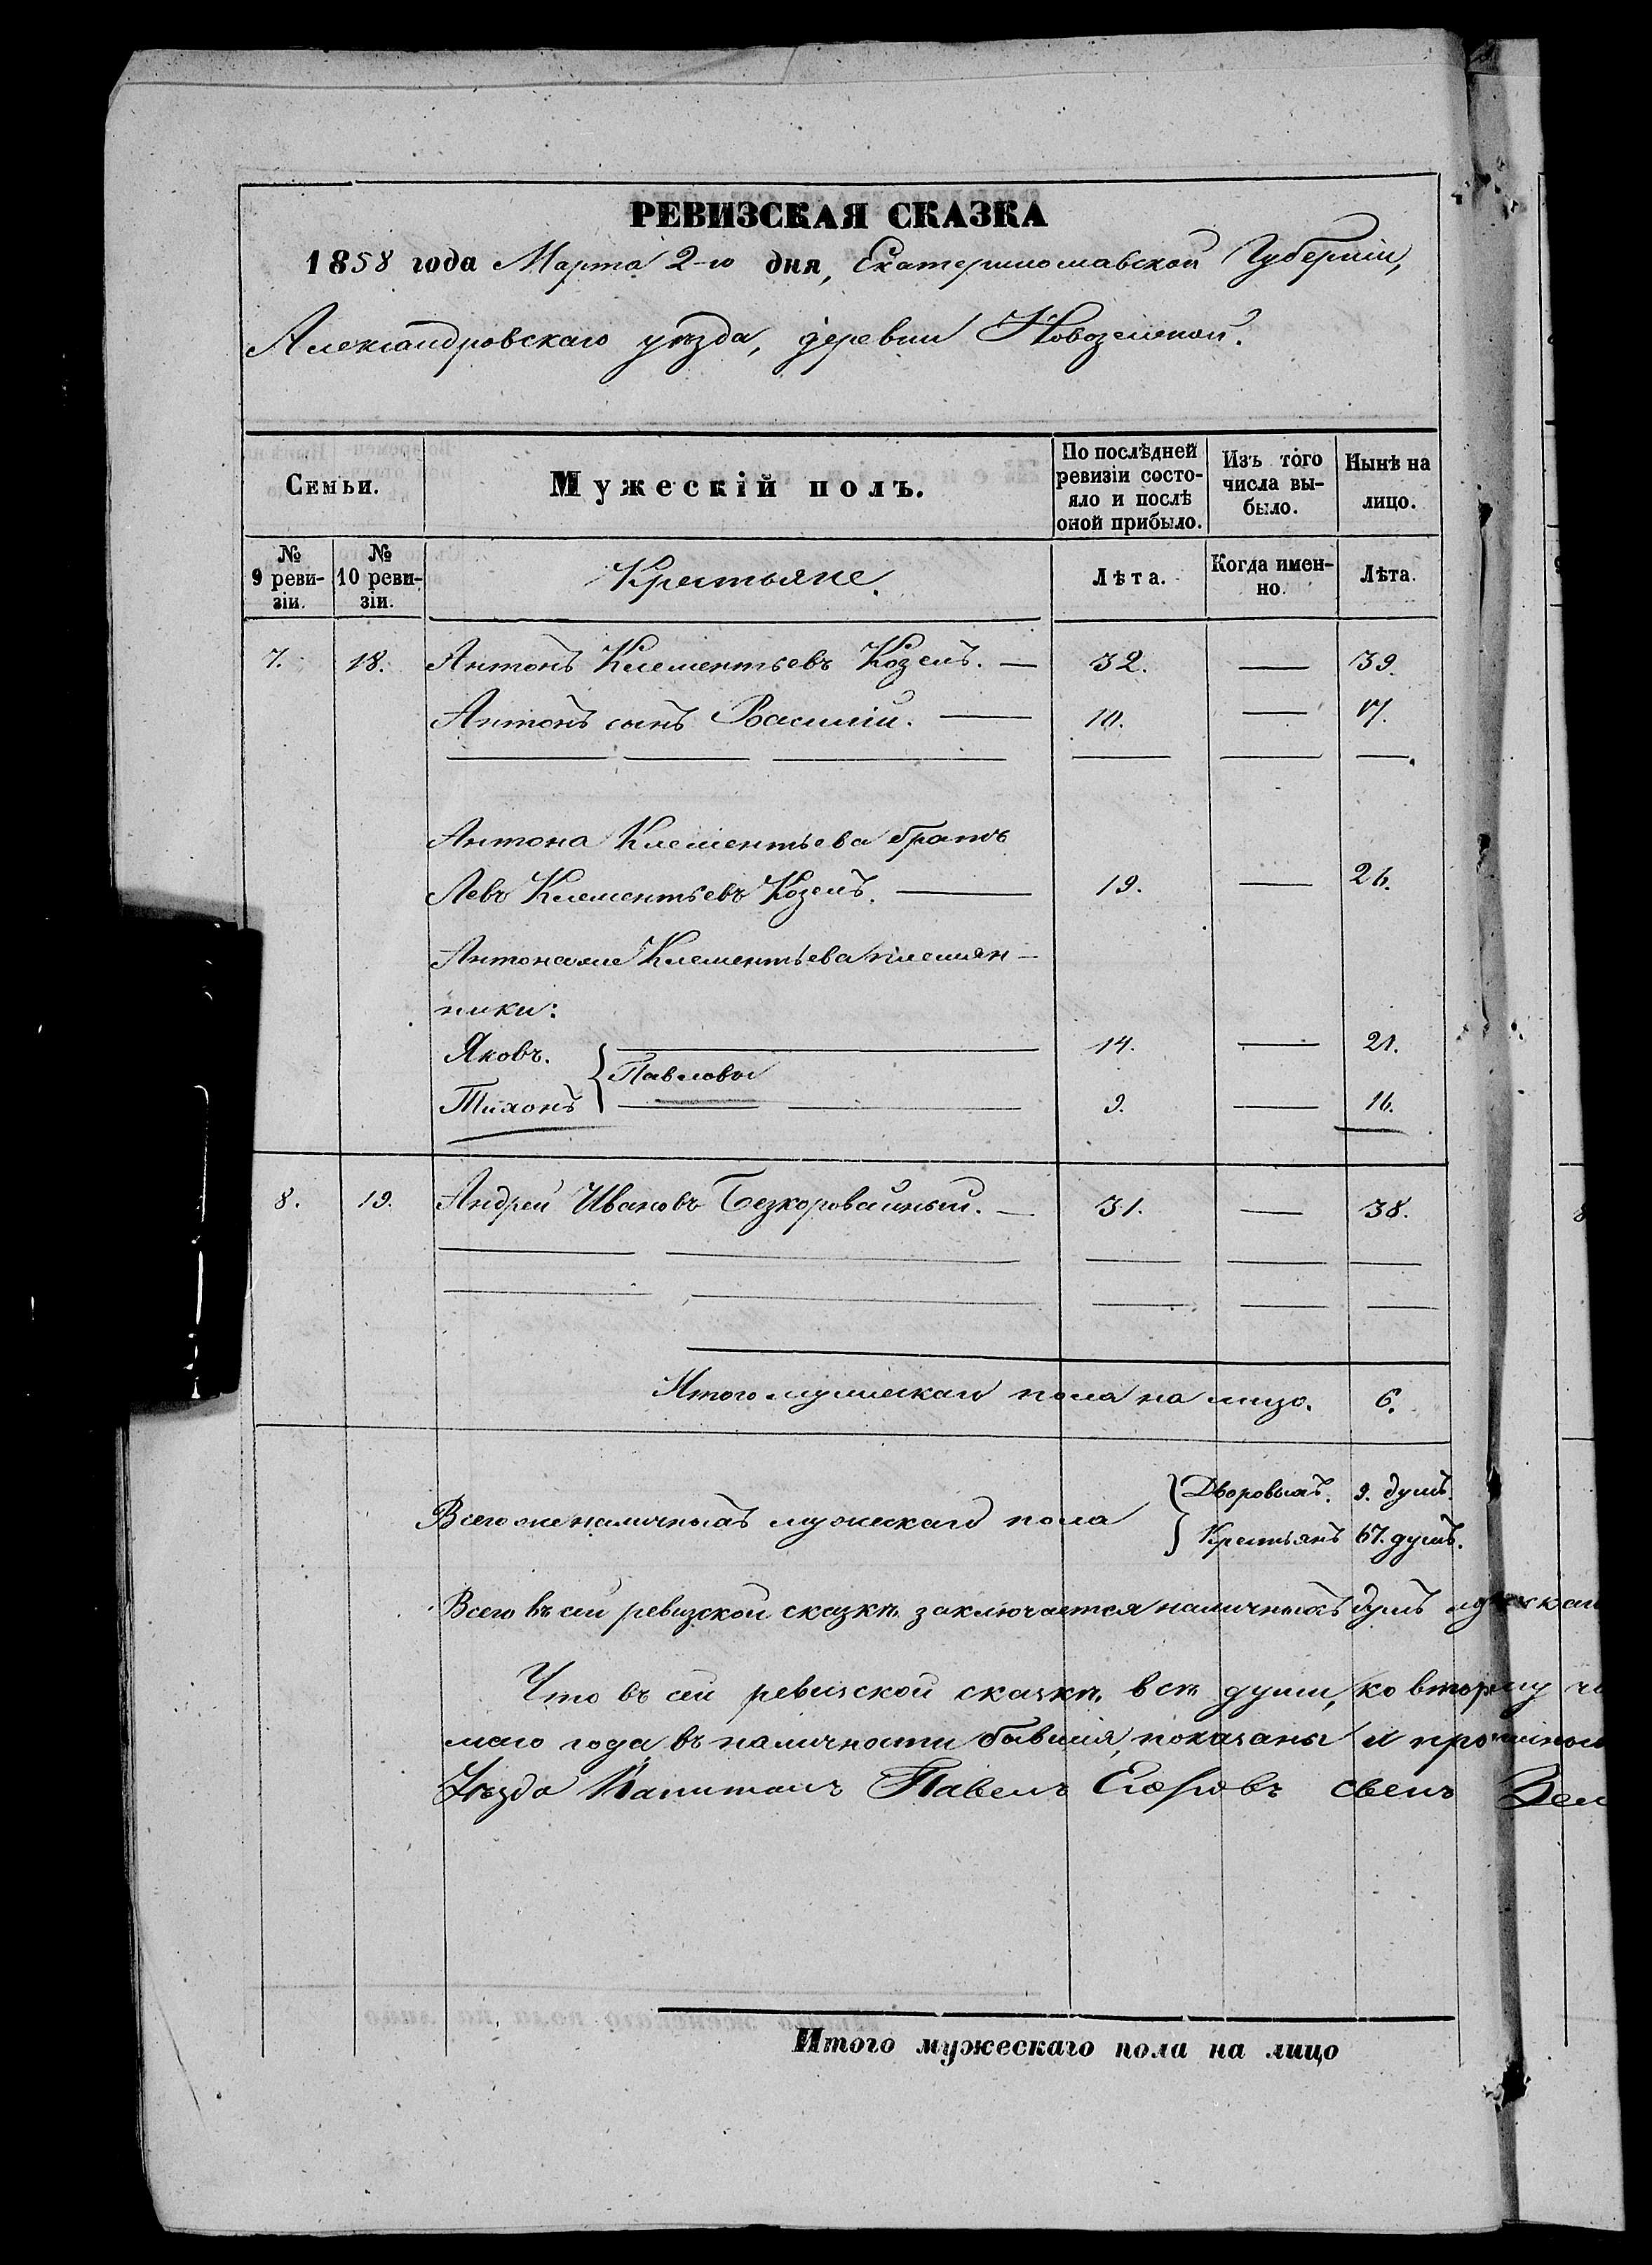 РЕВИЗСКАЯ СКАЗКА
1858 года Марта 2-го дня, Екатеринославской Губерніи,
Александровскаго уѣзда, деревни Новозеленой.
Семьи.
Мужескій полъ.
По послѣдней ревизіи состояло и послѣ оной прибыло.
Изъ того числа выбыло.
Нынѣ на лицо.
№ 9 ревизіи.
№ 10 ревизіи.
Крестьяне.
Лѣта.
Когда именно.
Лѣта.
7. 18. Антонъ Клементьевъ Козелъ. — 32. — 39.
Антонъ сынъ Василій. — 10. — 17.
Антона Клементьева братъ
Левъ Клементьевъ Козелъ. — 19. — 26.
Антона же Клементьева племян-
ники:
Яковъ. — 14. — 21.
Павловы
Тихонъ — 9. — 16.
8. 19. Андрей Ивановъ Безкоровайный. — 31. — 38.
Итого мужескаго пола на лицо. 6.
Дворовыхъ. 9. душъ.
Всего же наличныхъ мужескаго пола
Крестьянъ 67. душъ.
Всего въ сей ревизской сказкѣ заключается наличныхъ душъ
Что въ сей ревизской сказкѣ всѣ души, ко второму
маго года въ наличности бывшія, показаны и
Уѣзда Капитанъ Павелъ Егоровъ сынъ
Итого мужескаго пола на лицо